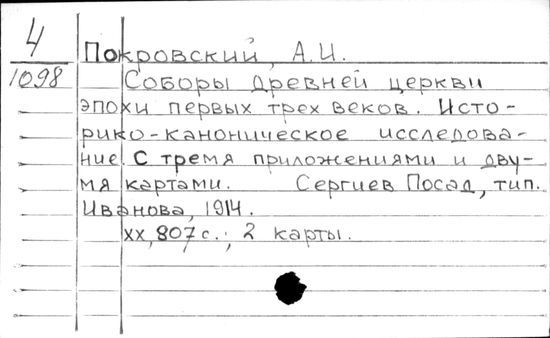 4
1098
Покровский, А.И.
Соборы древней церкви
эпохи первых трех веков. Исто-
рико-каноническое исследова-
ние. С тремя приложениями и дву-
мя картами. Сергиев Посад, тип.
Иванова, 1914.
XX, 807 с.; 2 карты.